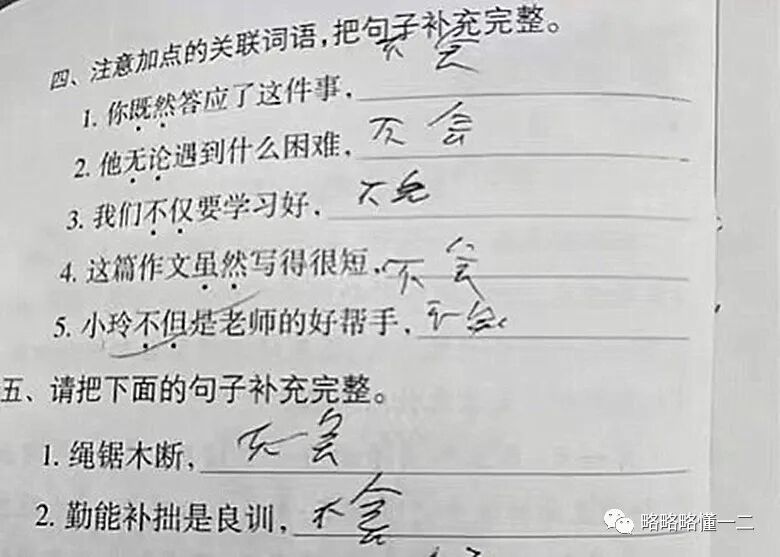 四、注意加点的关联词语,把句子补充完整。
1. 你既然答应了这件事, 不会
2. 他无论遇到什么困难, 不会
3. 我们不仅要学习好, 不会
4. 这篇作文虽然写得很短, 不会
5. 小玲不但是老师的好帮手, 不会
五、请把下面的句子补充完整。
1. 绳锯木断, 不会
2. 勤能补拙是良训, 不会
略略略懂一二